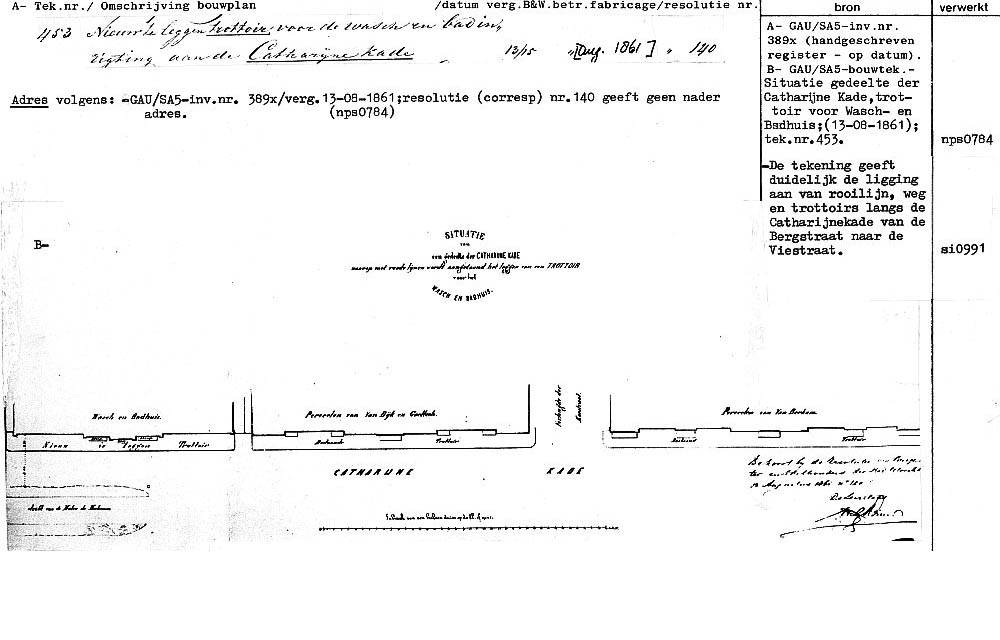 A- Tek.nr./ Omschrijving bouwplan /datum verg.B&W.betr.fabricage/resolutie nr.
453 Nieuw te leggen trottoir, voor de wasch en badin,
rigting aan de Catharijne kade 13/15 "[Aug. 1861] " 140
Adres volgens: -GAU/SA5-inv.nr. 389x/verg.13-08-1861;resolutie (corresp) nr.140 geeft geen nader
adres. (nps0784)
bron
A- GAU/SA5-inv.nr.
389x (handgeschreven
register - op datum).
B- GAU/SA5-bouwtek.-
Situatie gedeelte der
Catharijne Kade,trot-
toir voor Wasch- en
Badhuis;(13-08-1861);
tek.nr.453.
-De tekening geeft
duidelijk de ligging
aan van rooilijn, weg
en trottoirs langs de
Catharijnekade van de
Bergstraat naar de
Viestraat.
verwerkt
nps0784
si0991
B-
SITUATIE
van
een gedeelte der CATHARIJNE KADE
waarop met roode lijnen wordt aangetoond het leggen van een TROTTOIR
voor het
WASCH EN BADHUIS.
Wasch en Badhuis.
Nieuw te leggen Trottoir
Perceelen van Van Dijk en
Bestaande Trottoir
Perceelen van Van Berdam
Trottoir
CATHARIJNE KADE
Behoort bij de